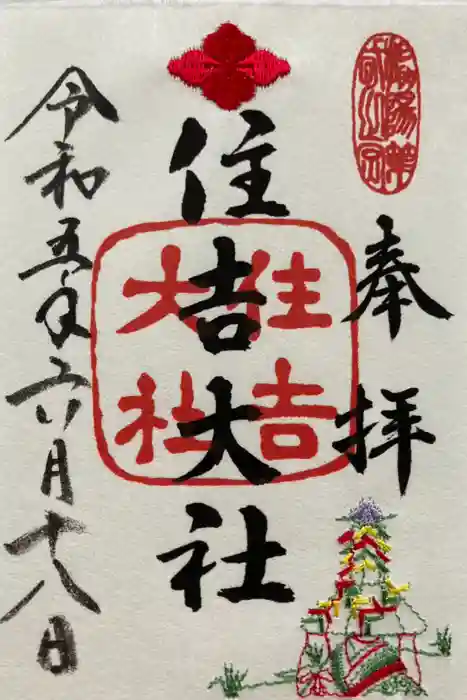 奉拝
住吉大社
住吉
大社
令和五年六月十八日